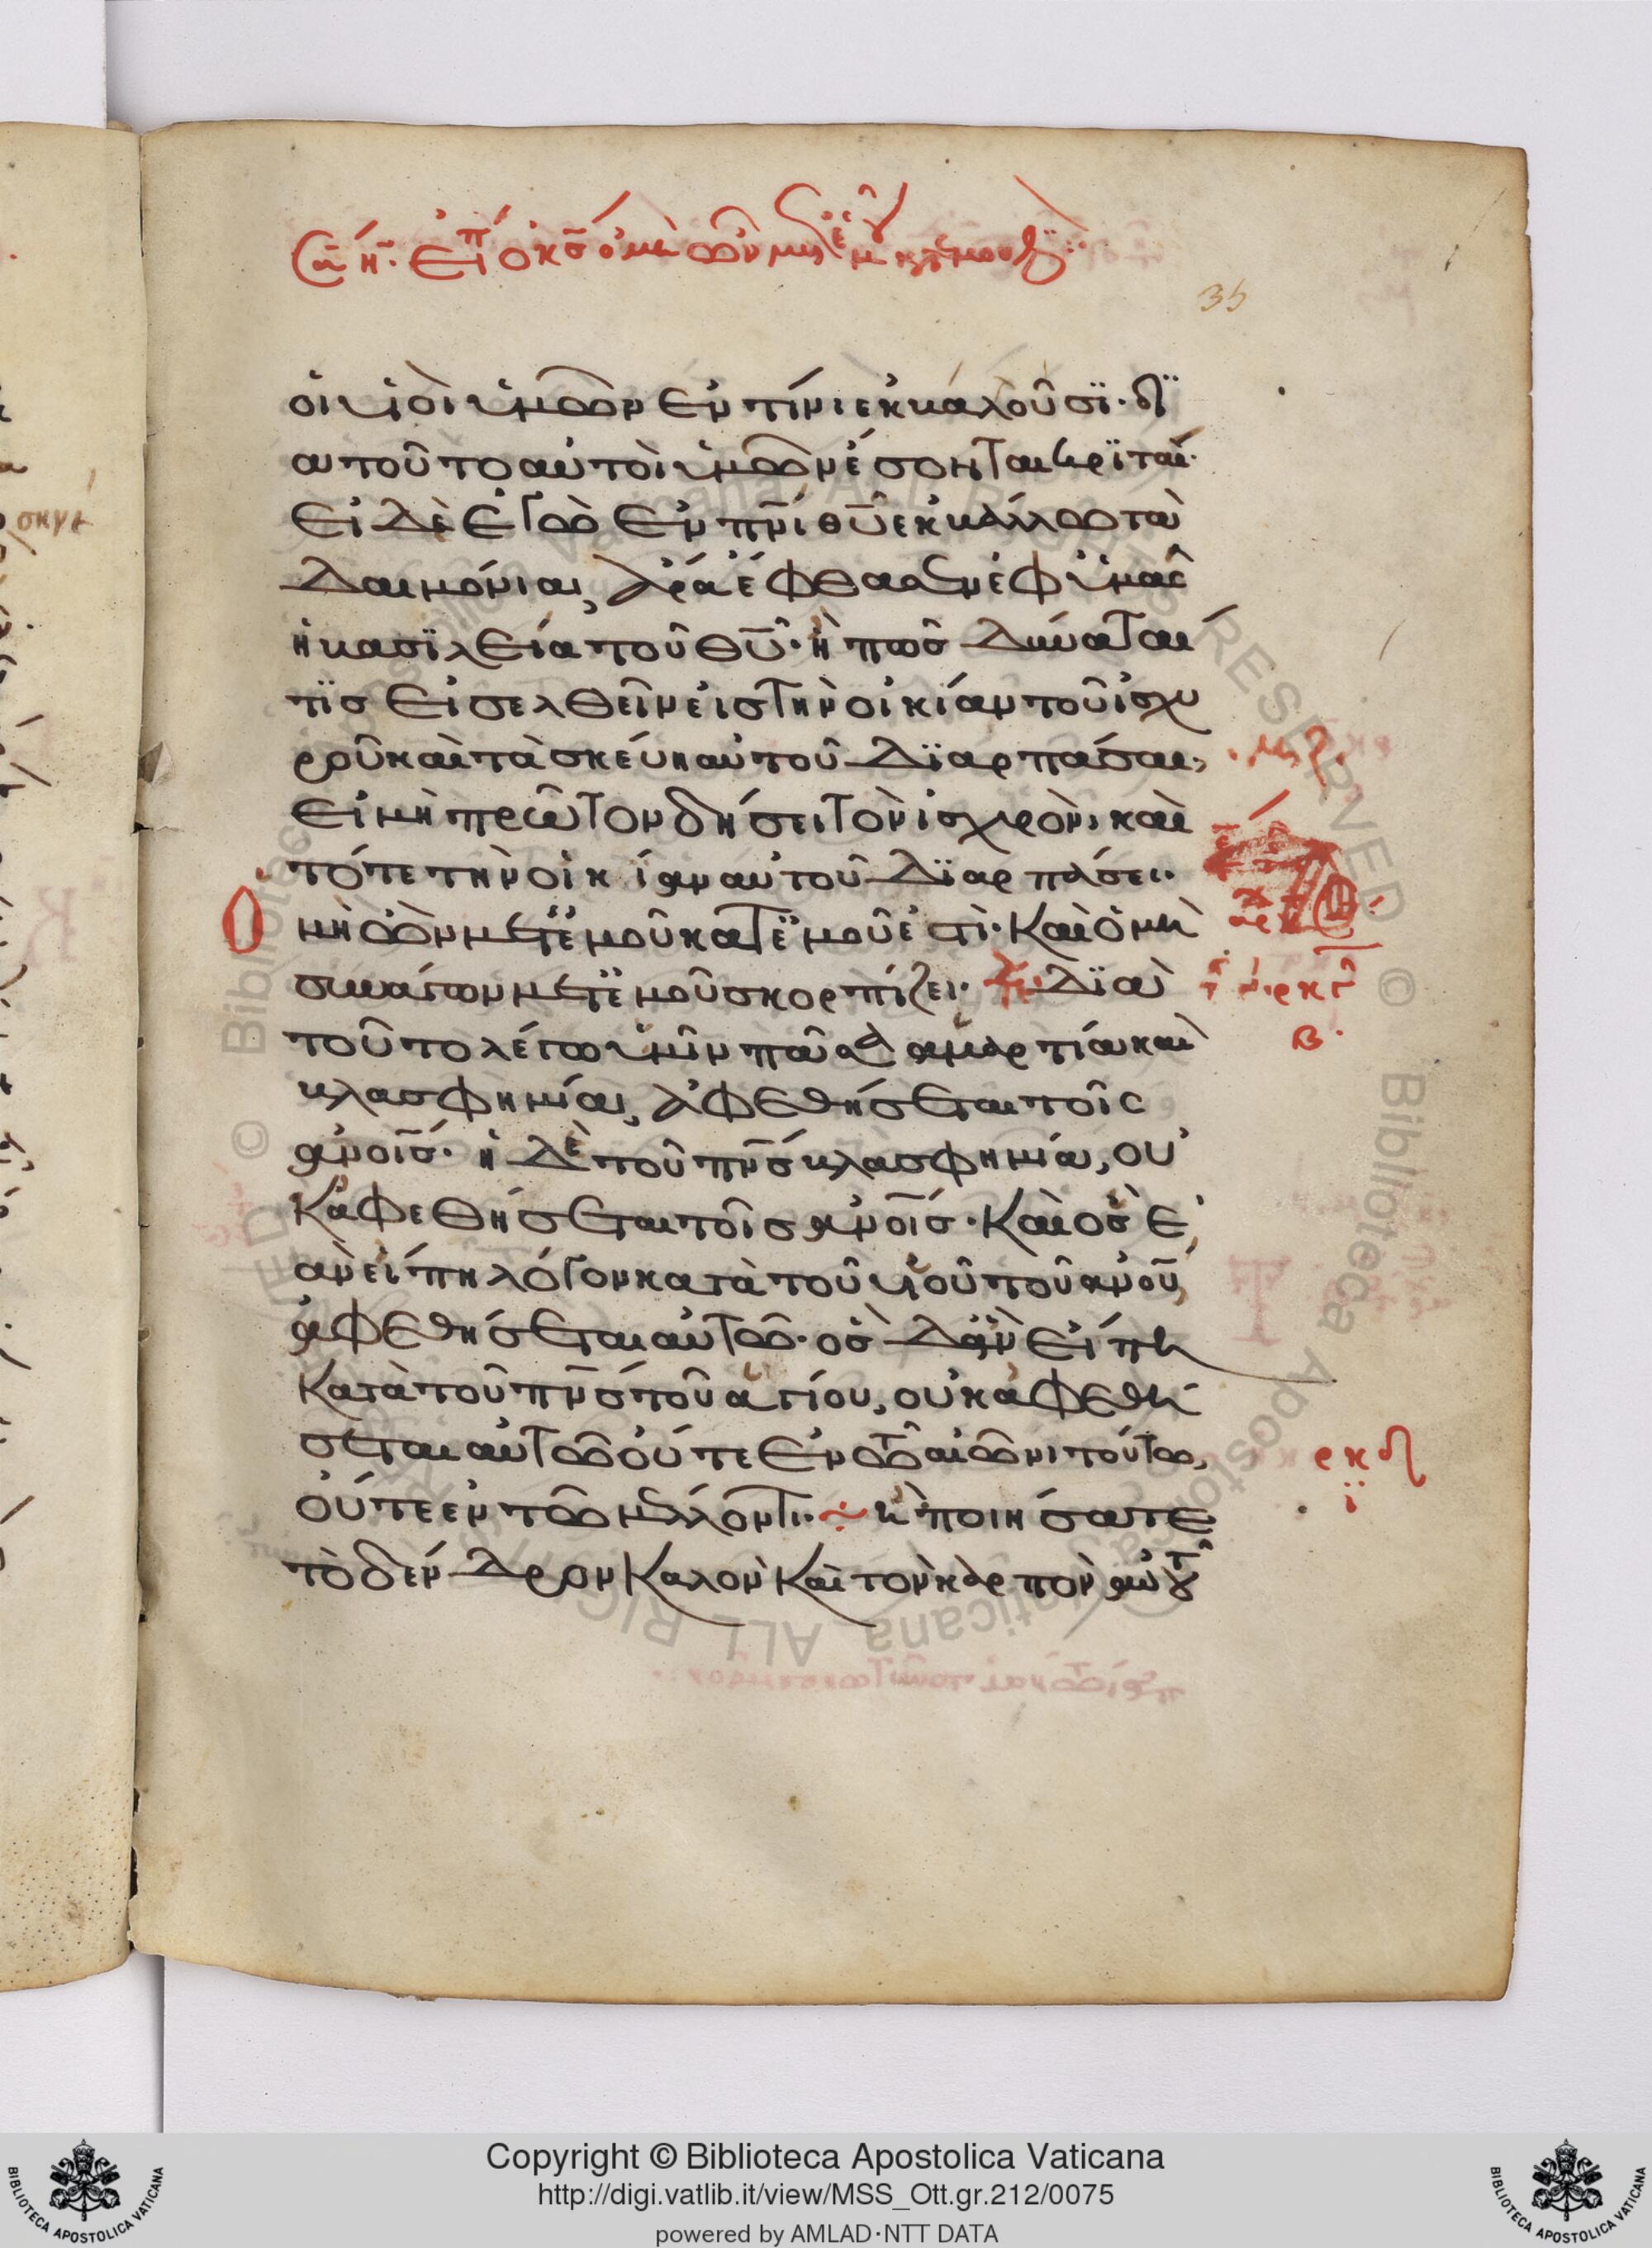 35
οἱ υἱοὶ ὑμῶν ἐν τίνι ἐκβαλοῦσϊ· δϊ
α τοῦτο αὐτοὶ ὑμῶν ἔσονται κριταί·
Εἰ δὲ ἐγὼ ἐν πνϊ θῦ ἐκβάλλω τὰ
δαιμόνια, ἄρα ἔφθασεν ἐφ ὑμᾶς
ἡ βασϊλεία τοῦ θῦ· ἢ πῶς δύναται
τϊς εἰσελθεῖν εἰς τὴν οἰκίαν τοῦ ἰσχυ
ροῦ καὶ τὰ σκεύη αὐτοῦ δϊαρπάσαι,
εἰ μὴ πρῶτον δήσει τὸν ἰσχυρὸν, καὶ
τότε τὴν οἰκίαν αὐτοῦ δϊαρπάσει·
μὴ ὢν μετ ἐμοῦ κατ ἐμοῦ ἐστὶ· Καὶ ὁ μὴ
συνάγων μετ ἐμοῦ σκορπίζει· Δϊὰ
τοῦτο λέγω ὑμῖν πᾶσα ἁμαρτία καὶ
βλασφημία, ἀφεθήσεται τοῖς
ἀνοῖς· ἡ δὲ τοῦ πνς βλασφημία, οὐ
κ ἀφεθήσεται τοῖς ἀνοῖς· Καὶ ὃς ἐ
ὰν εἴπη λόγον κατὰ τοῦ υἱοῦ τοῦ ἀνοῦ,
ἀφεθήσεται αὐτῶ· ὃς δ ἂν εἴπη
κατὰ τοῦ πνς τοῦ ἁγίου, οὐκ ἀφεθή
σεται αὐτῶ οὔτε ἐν τῶ αἰῶνι τούτω,
οὔτε ἐν τῶ μέλλοντι· ἢ ποιήσατε
τὸ δένδρον καλὸν καὶ τὸν καρπὸν αὐτοῦ
ρκγ
β·
ρκδ
ϊ
Copyright © Biblioteca Apostolica Vaticana
http://digi.vatlib.it/view/MSS_Ott.gr.212/0075
powered by AMLAD·NTT DATA
BIBLIOTECA APOSTOLICA VATICANA
BIBLIOTECA APOSTOLICA VATICANA